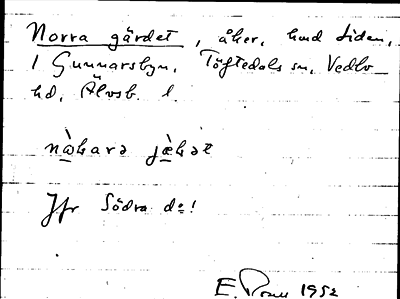 Norra gärdet, åker, hmd Liden,
1 Gunnarsbyn, Töftedals sn, Vedbo
hd, Älvsb. l.
nòkara jæ̀kət
Jfr Södra d:o!
E. 1952